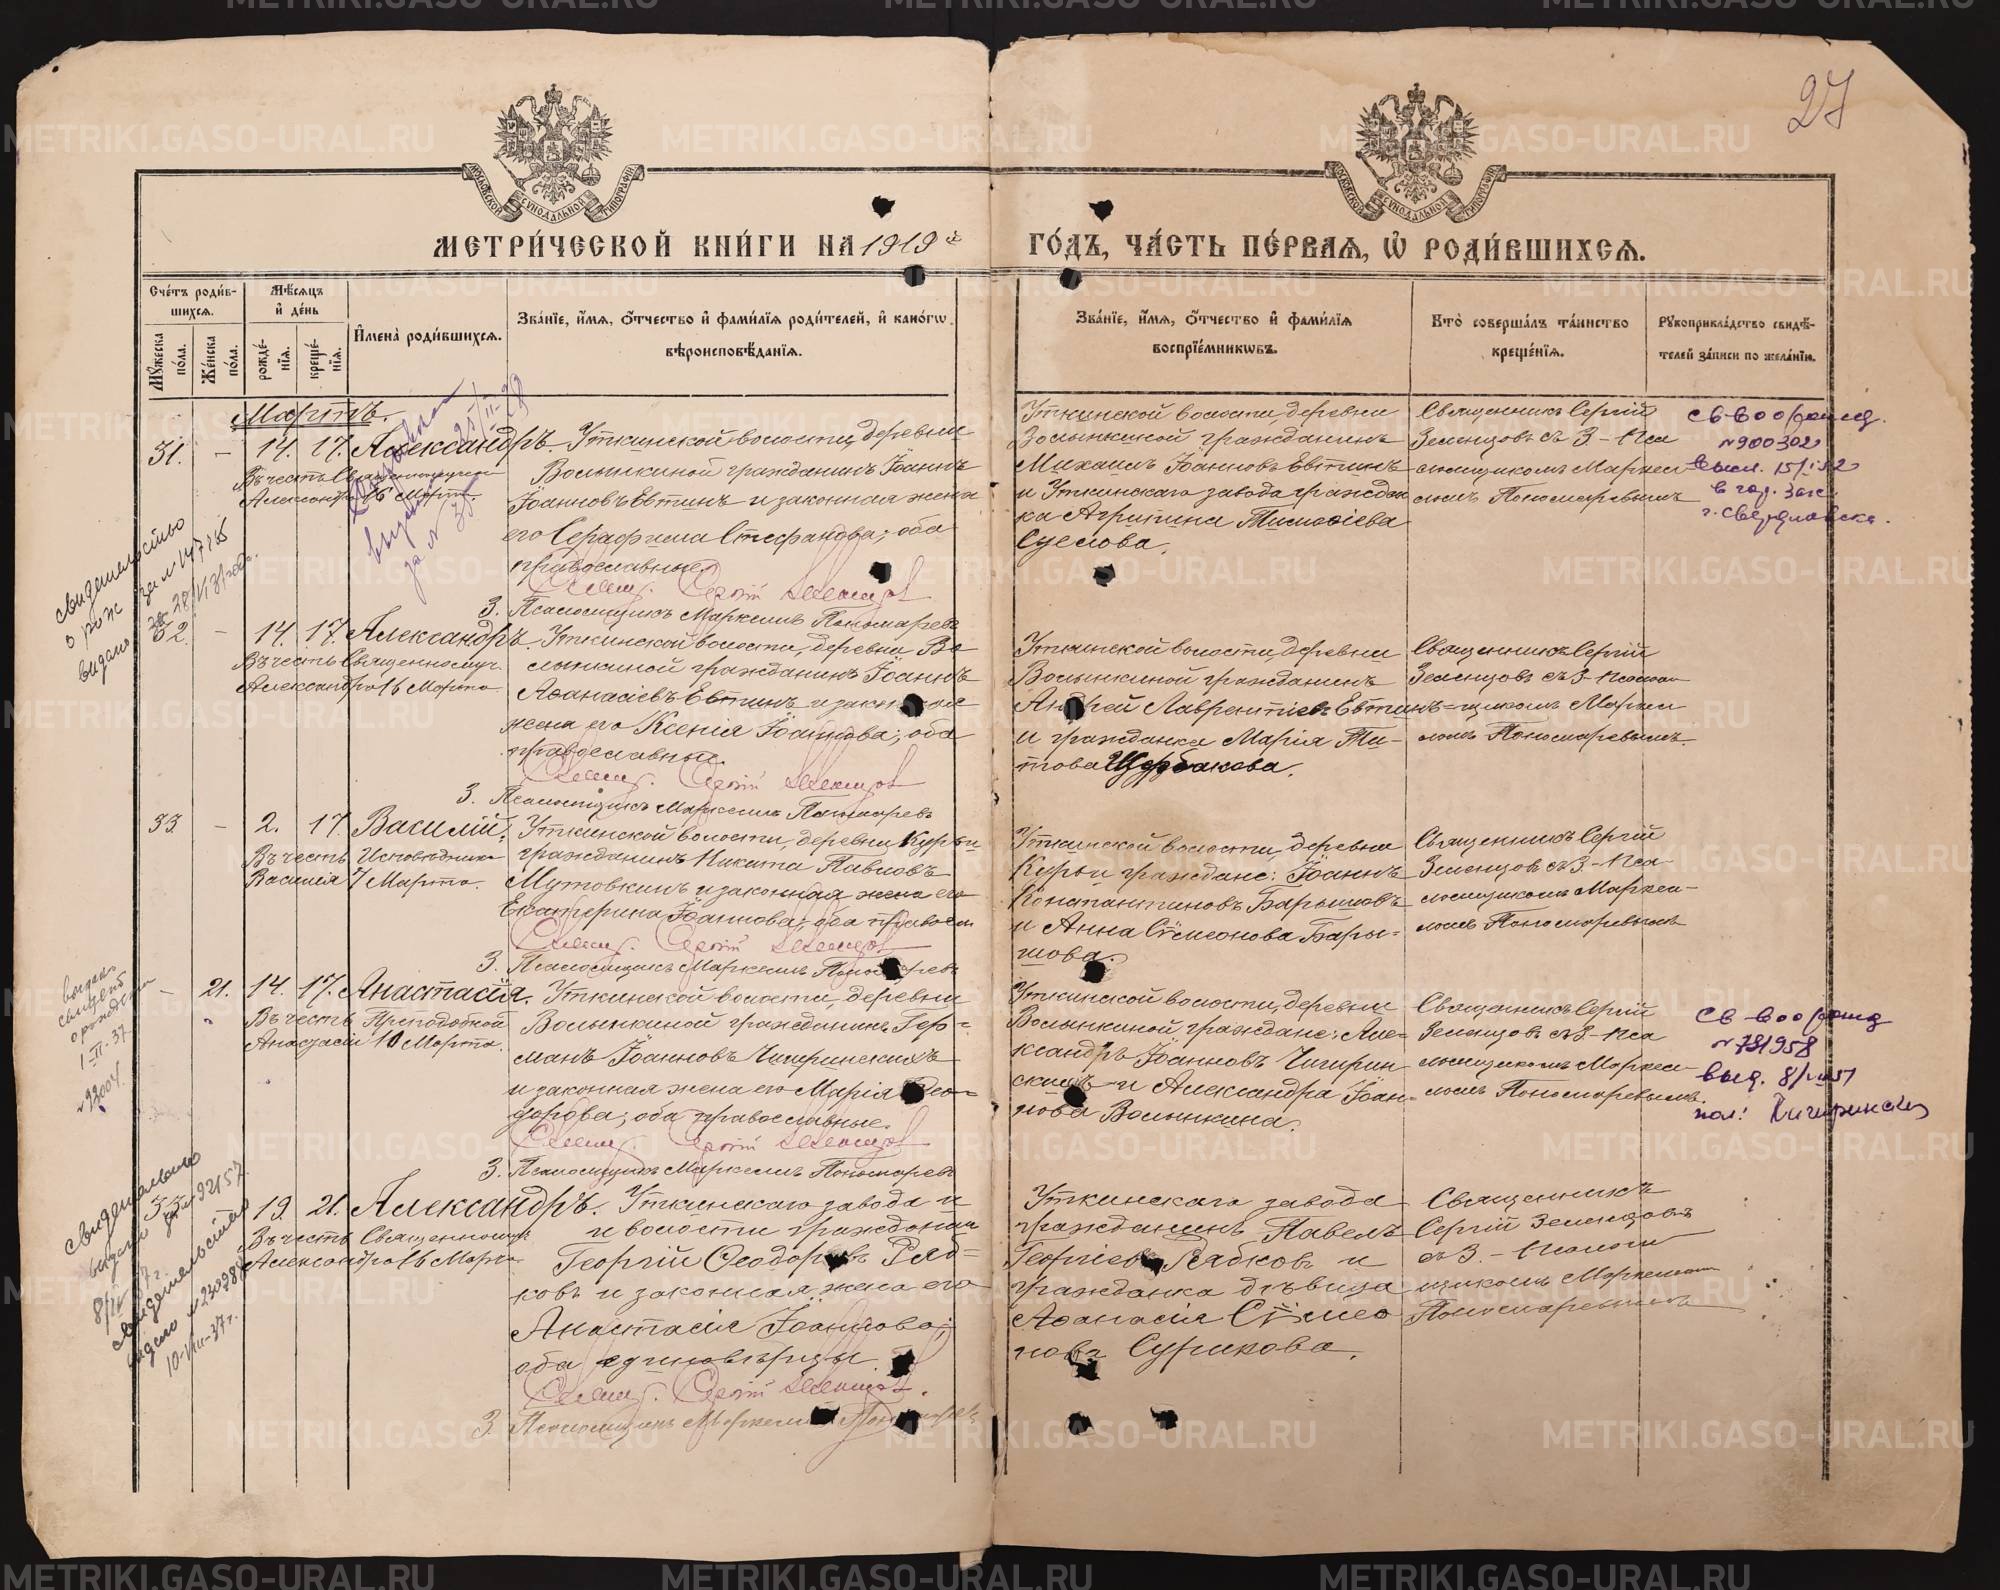 27
МОСКОВСКОЙ СУНОДАЛЬНОЙ ТИПОГРАФІИ
МОСКОВСКОЙ СУНОДАЛЬНОЙ ТИПОГРАФІИ
МЕТРИ́ЧЕСКОЙ КНИ́ГИ НА 1919 й
ГО́ДЪ, ЧА́СТЬ ПЕ́РВАЯ, Ѡ РОДИ́ВШИХСЯ.
Сче́тъ роди́в-
шихся.
Мꙋжеска по́ла.
Же́нска по́ла.
Мѣсяцъ
и де́нь
рожде́-
нія.
креще́-
нія.
Имена̀ роди́вшихся.
Зва́ніе, и́мя, ѻ́тчество и фами́лія роди́телей, и како́гѡ
вѣроисповѣ́данія.
Зва́ніе, и́мя, ѻ́тчество и фами́лія
воспріе́мникѡвъ.
Кто̀ соверша́лъ та́инство
креще́нія.
Рꙋкоприкла́дство свидѣ́-
телей за́писи по жела́нію.
Мартъ.
31. – 14. 17. Александръ.
Въ честь Священномученика
Александра 16 Марта.
Уткинской волости, деревни
Волынкиной гражданинъ Іоаннъ
Іоанновъ Евтинъ и законная жена
его Серафима Стефанова; оба
православные.
Свящ. Сергій Зеленцовъ
3. Псаломщикъ Маркеллъ Пономаревъ
Уткинской волости, деревни
Волынкиной гражданинъ
Михаилъ Іоанновъ Евтинъ
и Уткинскаго завода граждан
ка Агрипина Тимоѳіева
Суслова.
Священникъ Сергій
Зеленцовъ съ 3-Пса
ломщикомъ Маркел
ломъ Пономаревымъ
св-во о рожд.
№ 900302
в гор. Загс
г. Свердловска.
свидетельство
о рож за № 147185
видано 28/VI 31 года.
32. – 14. 17. Александръ.
Въ честь Священномуч.
Александра 16 Марта
Уткинской волости, деревни Во
лынкиной гражданинъ Іоаннъ
Аѳанасіевъ Евтинъ и законная
жена его Ксенія Іоаннова; оба
православные.
Свящ. Сергій Зеленцовъ
3. Псаломщикъ Маркеллъ Пономаревъ
Уткинской волости, деревни
Волынкиной гражданинъ
Андрей Лаврентіевъ Евтинъ
и гражданка Марія Ти-
това Щербакова.
Священникъ Сергій
Зеленцовъ съ 3-Псалом
щикомъ Маркел
ломъ Пономаревымъ.
33. – 2. 17. Василій.
Въ честь Исповѣдника
Василія 7 Марта.
Уткинской волости, деревни Курьи
гражданинъ Никита Павловъ
Мутовкинъ и законная жена его
Екатерина Іоаннова; оба правосл
Свящ. Сергій Зеленцовъ
3. Псаломщикъ Маркеллъ Пономаревъ
Уткинской волости, деревни
Курьи граждане: Іоаннъ
Константиновъ Барышовъ
и Анна Сѵмеонова Бары-
шова.
Священникъ Сергій
Зеленцовъ съ 3-Пса-
ломщикомъ Маркел-
ломъ Пономаревымъ
– 21. 14. 17. Анастасія.
Въ честь Преподобной
Анастасіи 10 Марта.
Уткинской волости, деревни
Волынкиной гражданинъ Гер-
манъ Іоанновъ Чигиринскихъ
и законная жена его Марія Ѳео-
дорова; оба православные.
Свящ. Сергій Зеленцовъ
3. Псаломщикъ Маркеллъ Пономаревъ
Уткинской волости, деревни
Волынкиной граждане: Але-
ксандръ Іоанновъ Чигирин
скихъ и Александра Іоан-
нова Волынкина.
Священникъ Сергій
Зеленцовъ съ 3-Пса
ломщикомъ Маркел-
ломъ Пономаревымъ.
св-во о рожд
№ 781958
выд. 8/VIII 51
выдано
свидет
о рождении
1-III-37
№ 93004.
19. 21. Александръ.
Въ честь Священномуч.
Александра 16 Марта
Уткинскаго завода и
и волости гражданин
Георгій Ѳеодоровъ Ряб-
ковъ и законная жена его
Анастасія Іоаннова;
оба единовѣрцы.
Свящ. Сергій Зеленцовъ.
3. Псаломщикъ Маркеллъ Пономаревъ
Уткинскаго завода
гражданинъ Павелъ
Георгіевъ Рябковъ и
гражданка дѣвица
Аѳанасія Сѵмео
нова Сурикова.
Священникъ
Сергій Зеленцовъ
съ 3.-Псалом
щикомъ Маркелломъ
Пономаревымъ
свидетельство
10-VIII-37г.